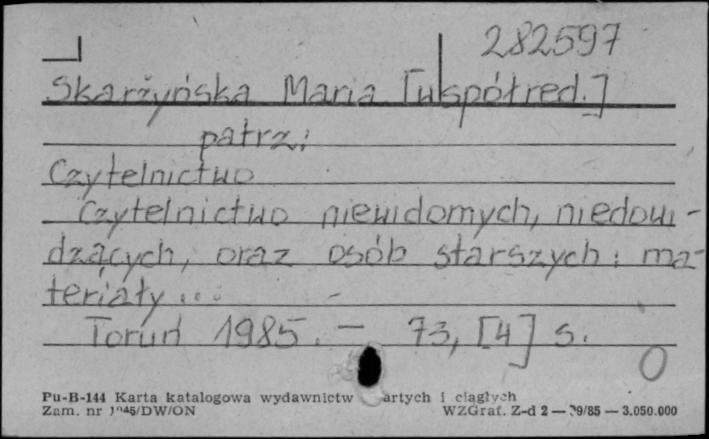 282597
Skarżyńska Maria [współred.]
patrz:
Czytelnictwo
Czytelnictwo niewidomych, niedowi-
dzących, oraz osób starszych : ma-
teriały...
Toruń 1985. - 73, [4] s.
Pu-B-144 Karta katalogowa wydawnictw zwartych i ciągłych
Zam. nr /DW/ON WZGraf. Z-d 2 — 9/85 — 3.050.000